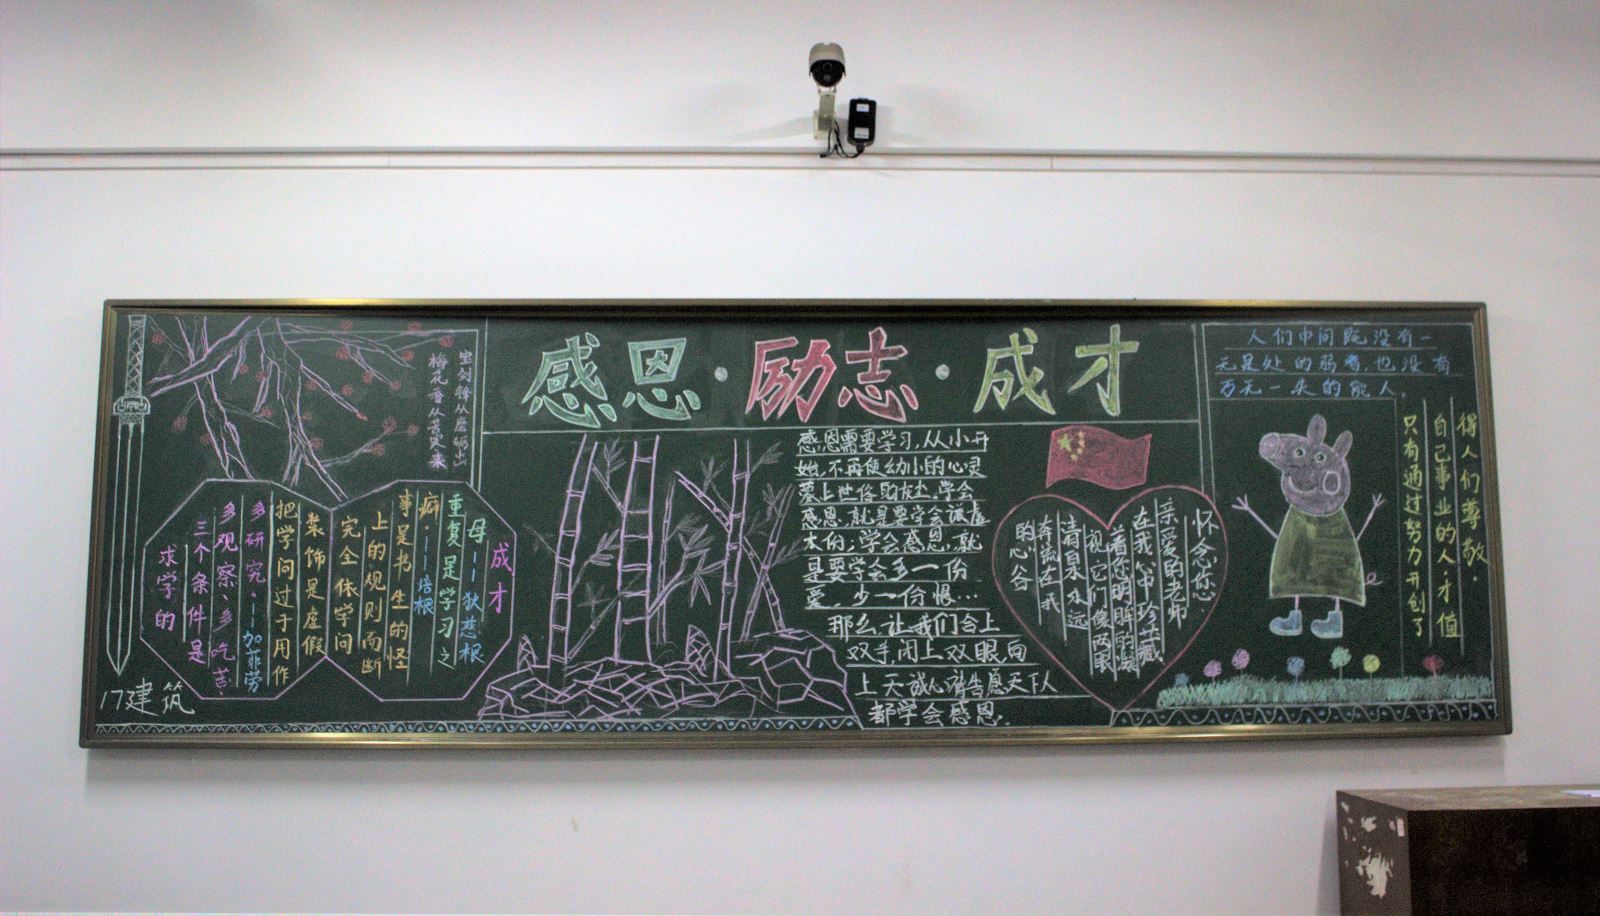 感恩·励志·成才
宝剑锋从磨砺出
梅花香从苦寒来
成才
母——狄慈根
重复是学习之
癖·——培根
事是书生的怪
上的规则而断
完全依学问
装饰是虚假
把学问过于用作
多研究·——加菲劳
多观察、多吃苦
三个条件是
求学的
17建筑
感恩需要学习,从小开
始,不再使幼小的心灵
蒙上世俗的灰尘,学会
感恩,就是要学会谦虚
大的;学会感恩,就
是要学会多一份
爱,少一份恨…
那么,让我们合上
双手,闭上双眼,向
上天诚心祷告愿天下人
都学会感恩.
怀念您:
亲爱的老师
在我心中珍藏
着您明眸的凝
视,它们像两眼
清泉永远
奔流在我
的心谷
人们中间既没有一
无是处的弱者,也没有
万无一失的能人.
得人们尊敬.
自己事业的人才值
只有通过努力开创了